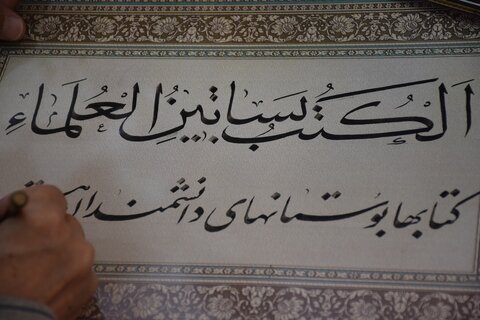 اَلْكُتُبُ بَسَاتِينُ الْعُلَمَاءِ
کتابها بوستانهای دانشمندان است